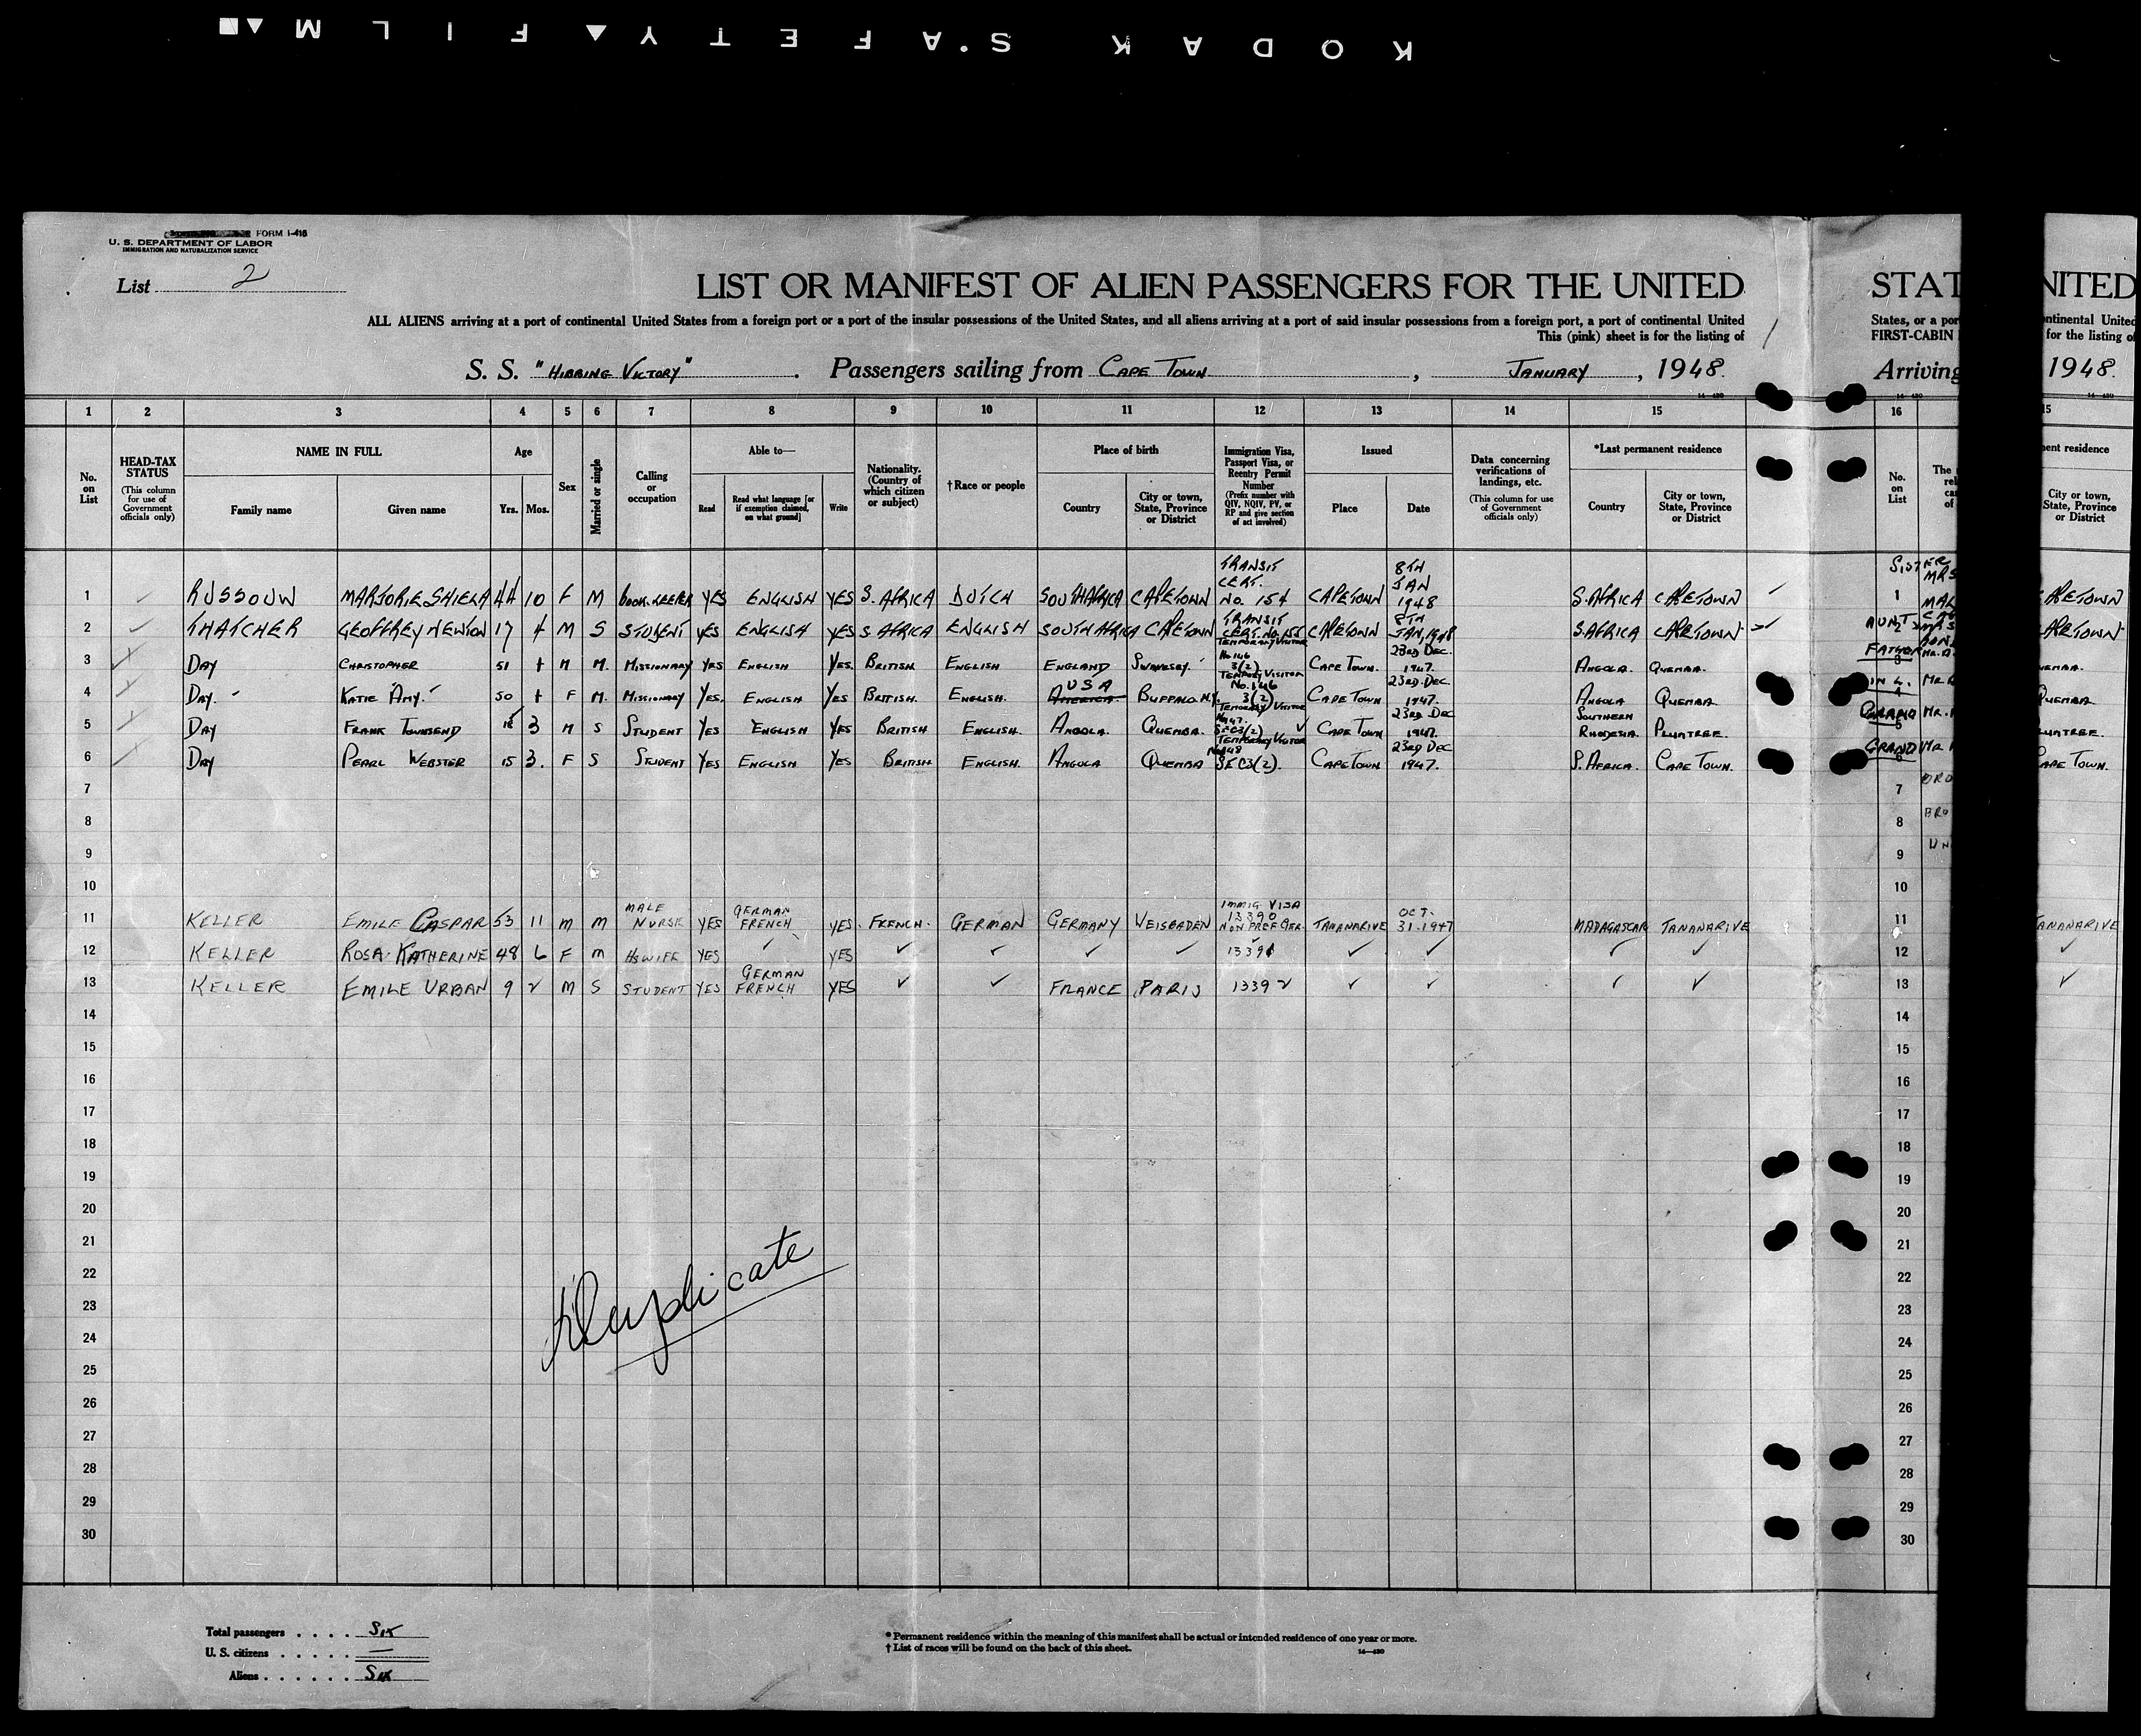 KODAK S'AFETY FILM
FORM I-415
U. S. DEPARTMENT OF LABOR
IMMIGRATION AND NATURALIZATION SERVICE
List 2
LIST OR MANIFEST OF ALIEN PASSENGERS FOR THE UNITED
STAT
NITED
ALL ALIENS arriving at a port of continental United States from a foreign port or a port of the insular possessions of the United States, and all aliens arriving at a port of said insular possessions from a foreign port, a port of continental United
States, or a por
ntinental United
This (pink) sheet is for the listing of
FIRST-CABIN
for the listing of
S. S. "HIBBING VICTORY". Passengers sailing from CAPE TOWN, JANUARY, 1948.
Arriving
1948.
1 2 3 4 5 6 7 8 9 10 11 12 13 14 15 16 15
No. on List
HEAD-TAX STATUS (This column for use of Government officials only)
NAME IN FULL
Family name Given name
Age
Yrs. Mos.
Sex
Married or single
Calling or occupation
Able to—
Read Read what language [or if exemption claimed, on what ground] Write
Nationality. (Country of which citizen or subject)
†Race or people
Place of birth
Country City or town, State, Province or District
Immigration Visa, Passport Visa, or Reentry Permit Number (Prefix number with QIV, NQIV, PV, or RP and give section of act involved)
Issued
Place Date
Data concerning verifications of landings, etc. (This column for use of Government officials only)
*Last permanent residence
Country City or town, State, Province or District
No. on List
ent residence
City or town, State, Province or District
1 RUSSOUW MARJORIE SHIELA 44 10 F M BOOK-KEEPER YES ENGLISH YES S. AFRICA DUTCH SOUTH AFRICA CAPETOWN TRANSIT CERT. No. 154 CAPETOWN 8TH JAN 1948 S. AFRICA CAPETOWN 1 SISTER MRS
2 THATCHER GEOFFREY NEWTON 17 4 M S STUDENT YES ENGLISH YES S AFRICA ENGLISH SOUTH AFRICA CAPETOWN TRANSIT CERT. No. 155 CAPETOWN 8TH JAN, 1948 S. AFRICA CAPETOWN 2 AUNT
3 DAY CHRISTOPHER 51 + M M. MISSIONARY YES ENGLISH YES. BRITISH ENGLISH ENGLAND SWAVESEY. TEMPORARY VISITOR No 146 3(2) CAPE TOWN. 23RD DEC. 1947. ANGOLA. QUEMBA. FATHER
4 DAY. KATIE "AMY." 50 + F M. MISSIONARY YES. ENGLISH YES BRITISH. ENGLISH. USA AMERICA. BUFFALO N.Y. TEMPORY VISITOR No. 146 3(2) CAPE TOWN 23RD DEC. 1947. ANGOLA QUEMBA
5 DAY FRANK TOWNSEND 18 3 M S STUDENT YES ENGLISH YES BRITISH ENGLISH. ANGOLA. QUEMBA. TEMPORARY VISITOR No 147. SEC3(2) CAPE TOWN 23RD DEC 1947. SOUTHERN RHODESIA. PLUMTREE. GRAND
6 DAY PEARL WEBSTER 15 3. F S STUDENT YES ENGLISH YES BRITISH ENGLISH. ANGOLA QUEMBA TEMPORARY VISITOR No 148 SEC3(2). CAPE TOWN 23RD DEC 1947. S. AFRICA. CAPE TOWN. GRAND
7 7
8 8 BRO
9 9
10 10
11 KELLER EMILE CASPAR 53 11 M M MALE NURSE YES GERMAN FRENCH YES. FRENCH. GERMAN GERMANY WEISBADEN IMMIG VISA 13390 NON PREF QTR. TANANARIVE OCT. 31-1947 MADAGASCAR TANANARIVE 11 ANANARIVE
12 KELLER ROSA KATHERINE 48 6 F M HSWIFE YES ✓ YES ✓ ✓ ✓ ✓ 13391 ✓ ✓ ✓ ✓ 12 ✓
13 KELLER EMILE URBAN 9 2 M S STUDENT YES GERMAN FRENCH YES ✓ ✓ FRANCE PARIS 13392 ✓ ✓ ✓ ✓ 13 ✓
14 14
15 15
16 16
17 17
18 18
19 19
20 20
21 21
22 22
23 23
24 24
25 25
26 26
27 27
28 28
29 29
30 30
Duplicate
Total passengers .... SIX
U. S. citizens ..... —
Aliens ...... SIX
* Permanent residence within the meaning of this manifest shall be actual or intended residence of one year or more.
† List of races will be found on the back of this sheet.
14—430